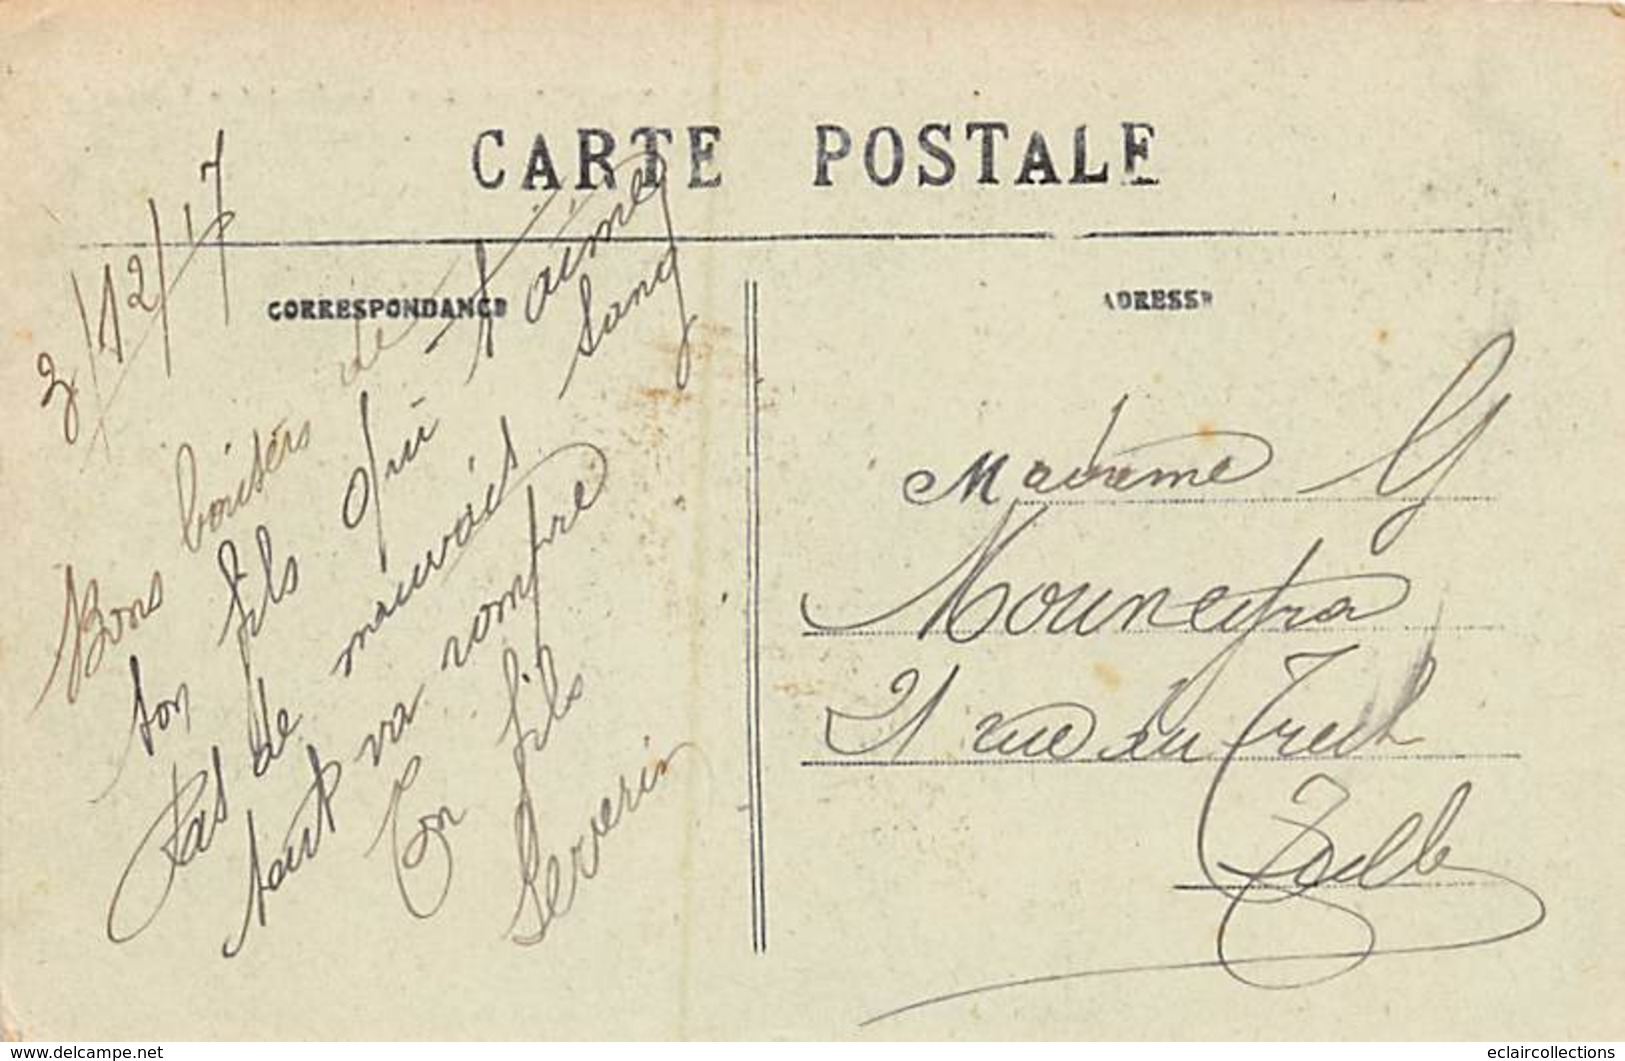 CARTE POSTALE
3/12/17
CORRESPONDANCE
ADRESSE
Bons baisers de
ton fils qui t'aime
Pas de mauvais sang
tout va rompre
Ton fils
Severin
Madame G
Mouneyra
21 rue du Trech
Tulle
www.delcampe.net
eclaircollections